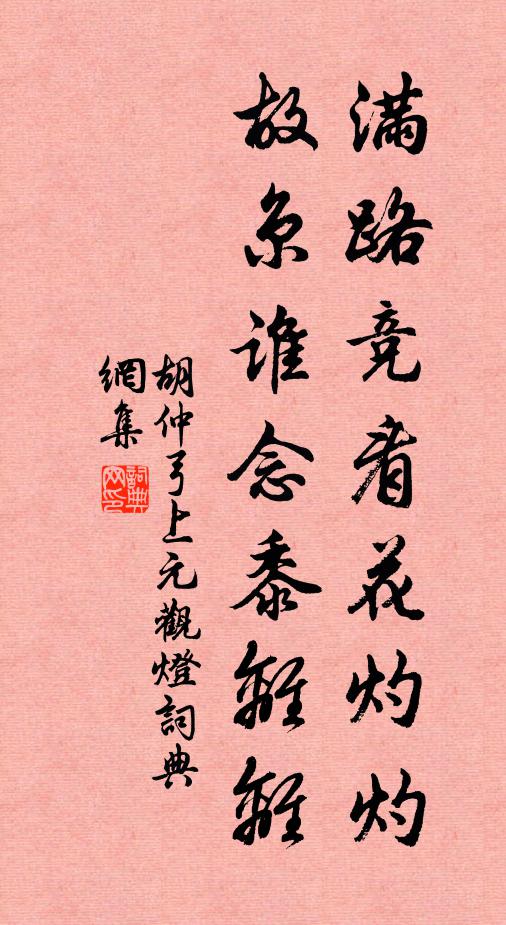 滿路競看花灼灼
故京誰念黍離離
胡仲弓上元觀燈詞典
網集
詞典
网印